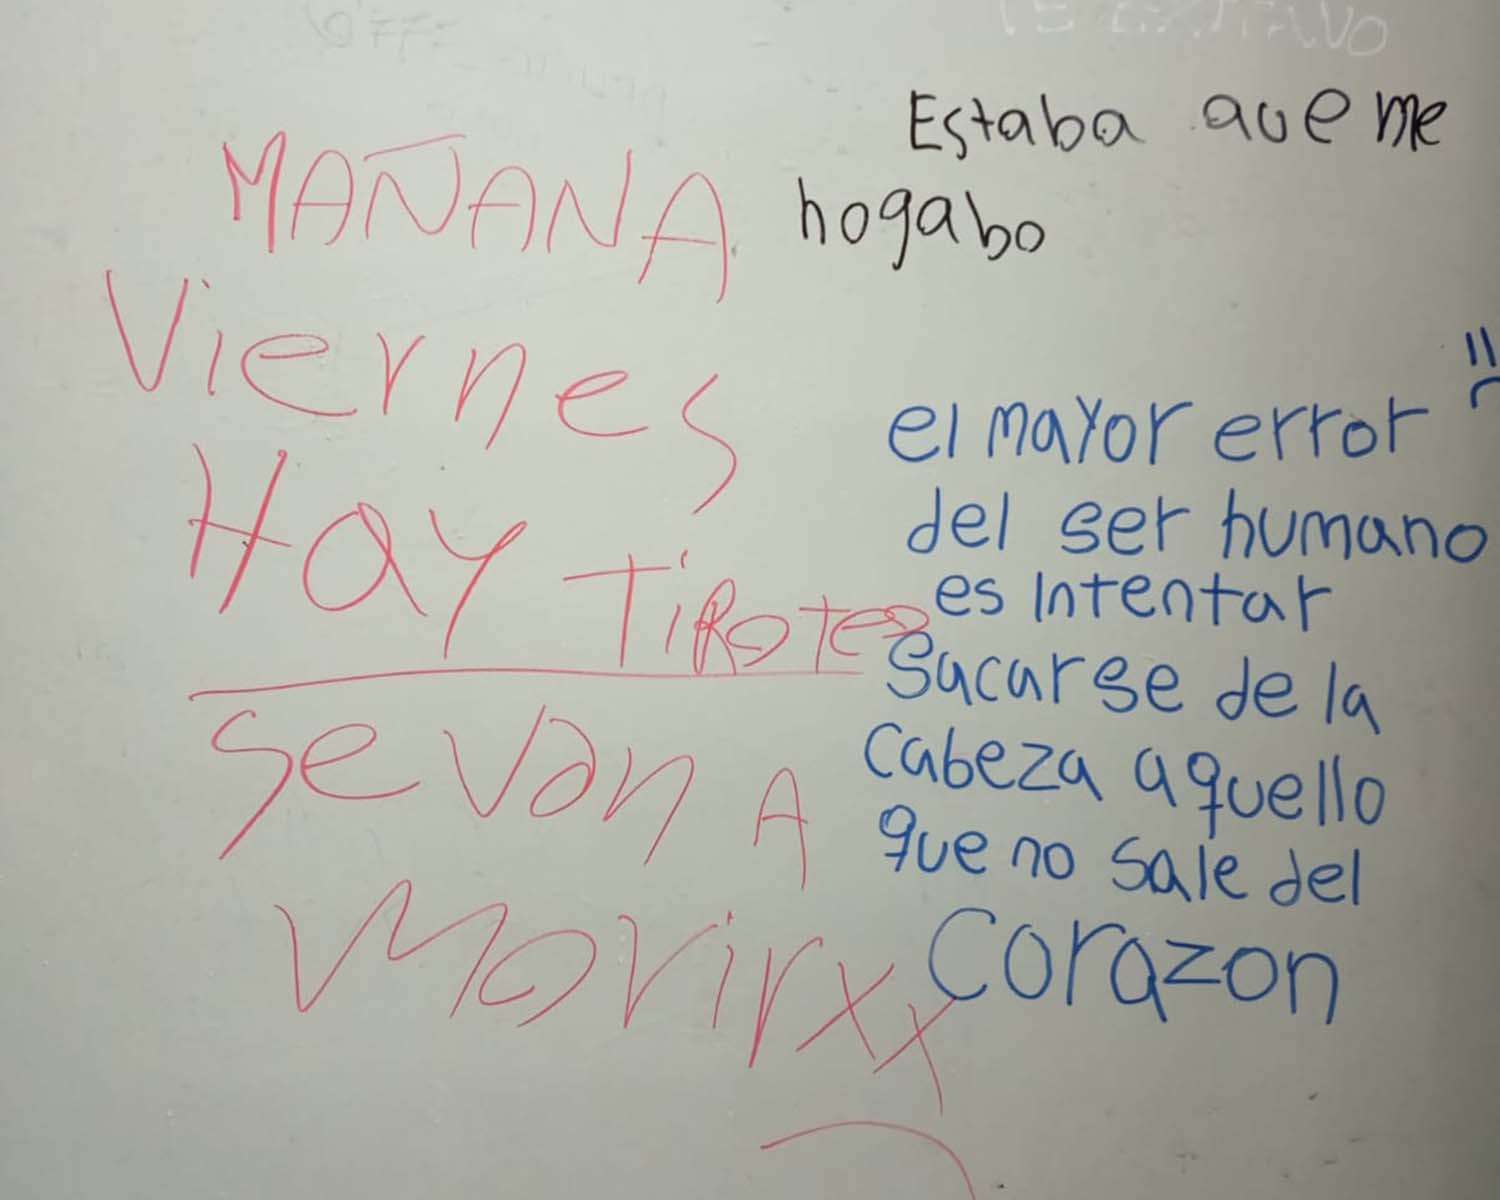 MAÑANA
Viernes
HAY TiROTEO
se van A
Morir xx
Estaba que me
hogabo
el mayor error
del ser humano
es Intentar
Sacarse de la
Cabeza aquello
que no sale del
Corazon